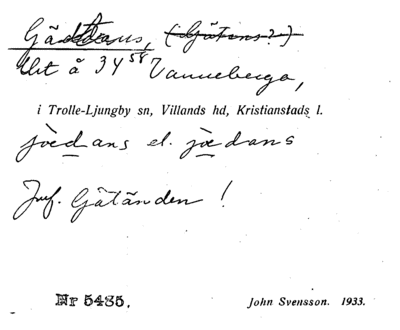 Gäddans, (Gätens?)
Urt å 34⁵⁸ Vanneberga,
i Trolle-Ljungby sn, Villands hd, Kristianstads l.
jèdans el. jèdans
Jmf. Gätänden!
Nr 5485.
John Svensson. 1933.